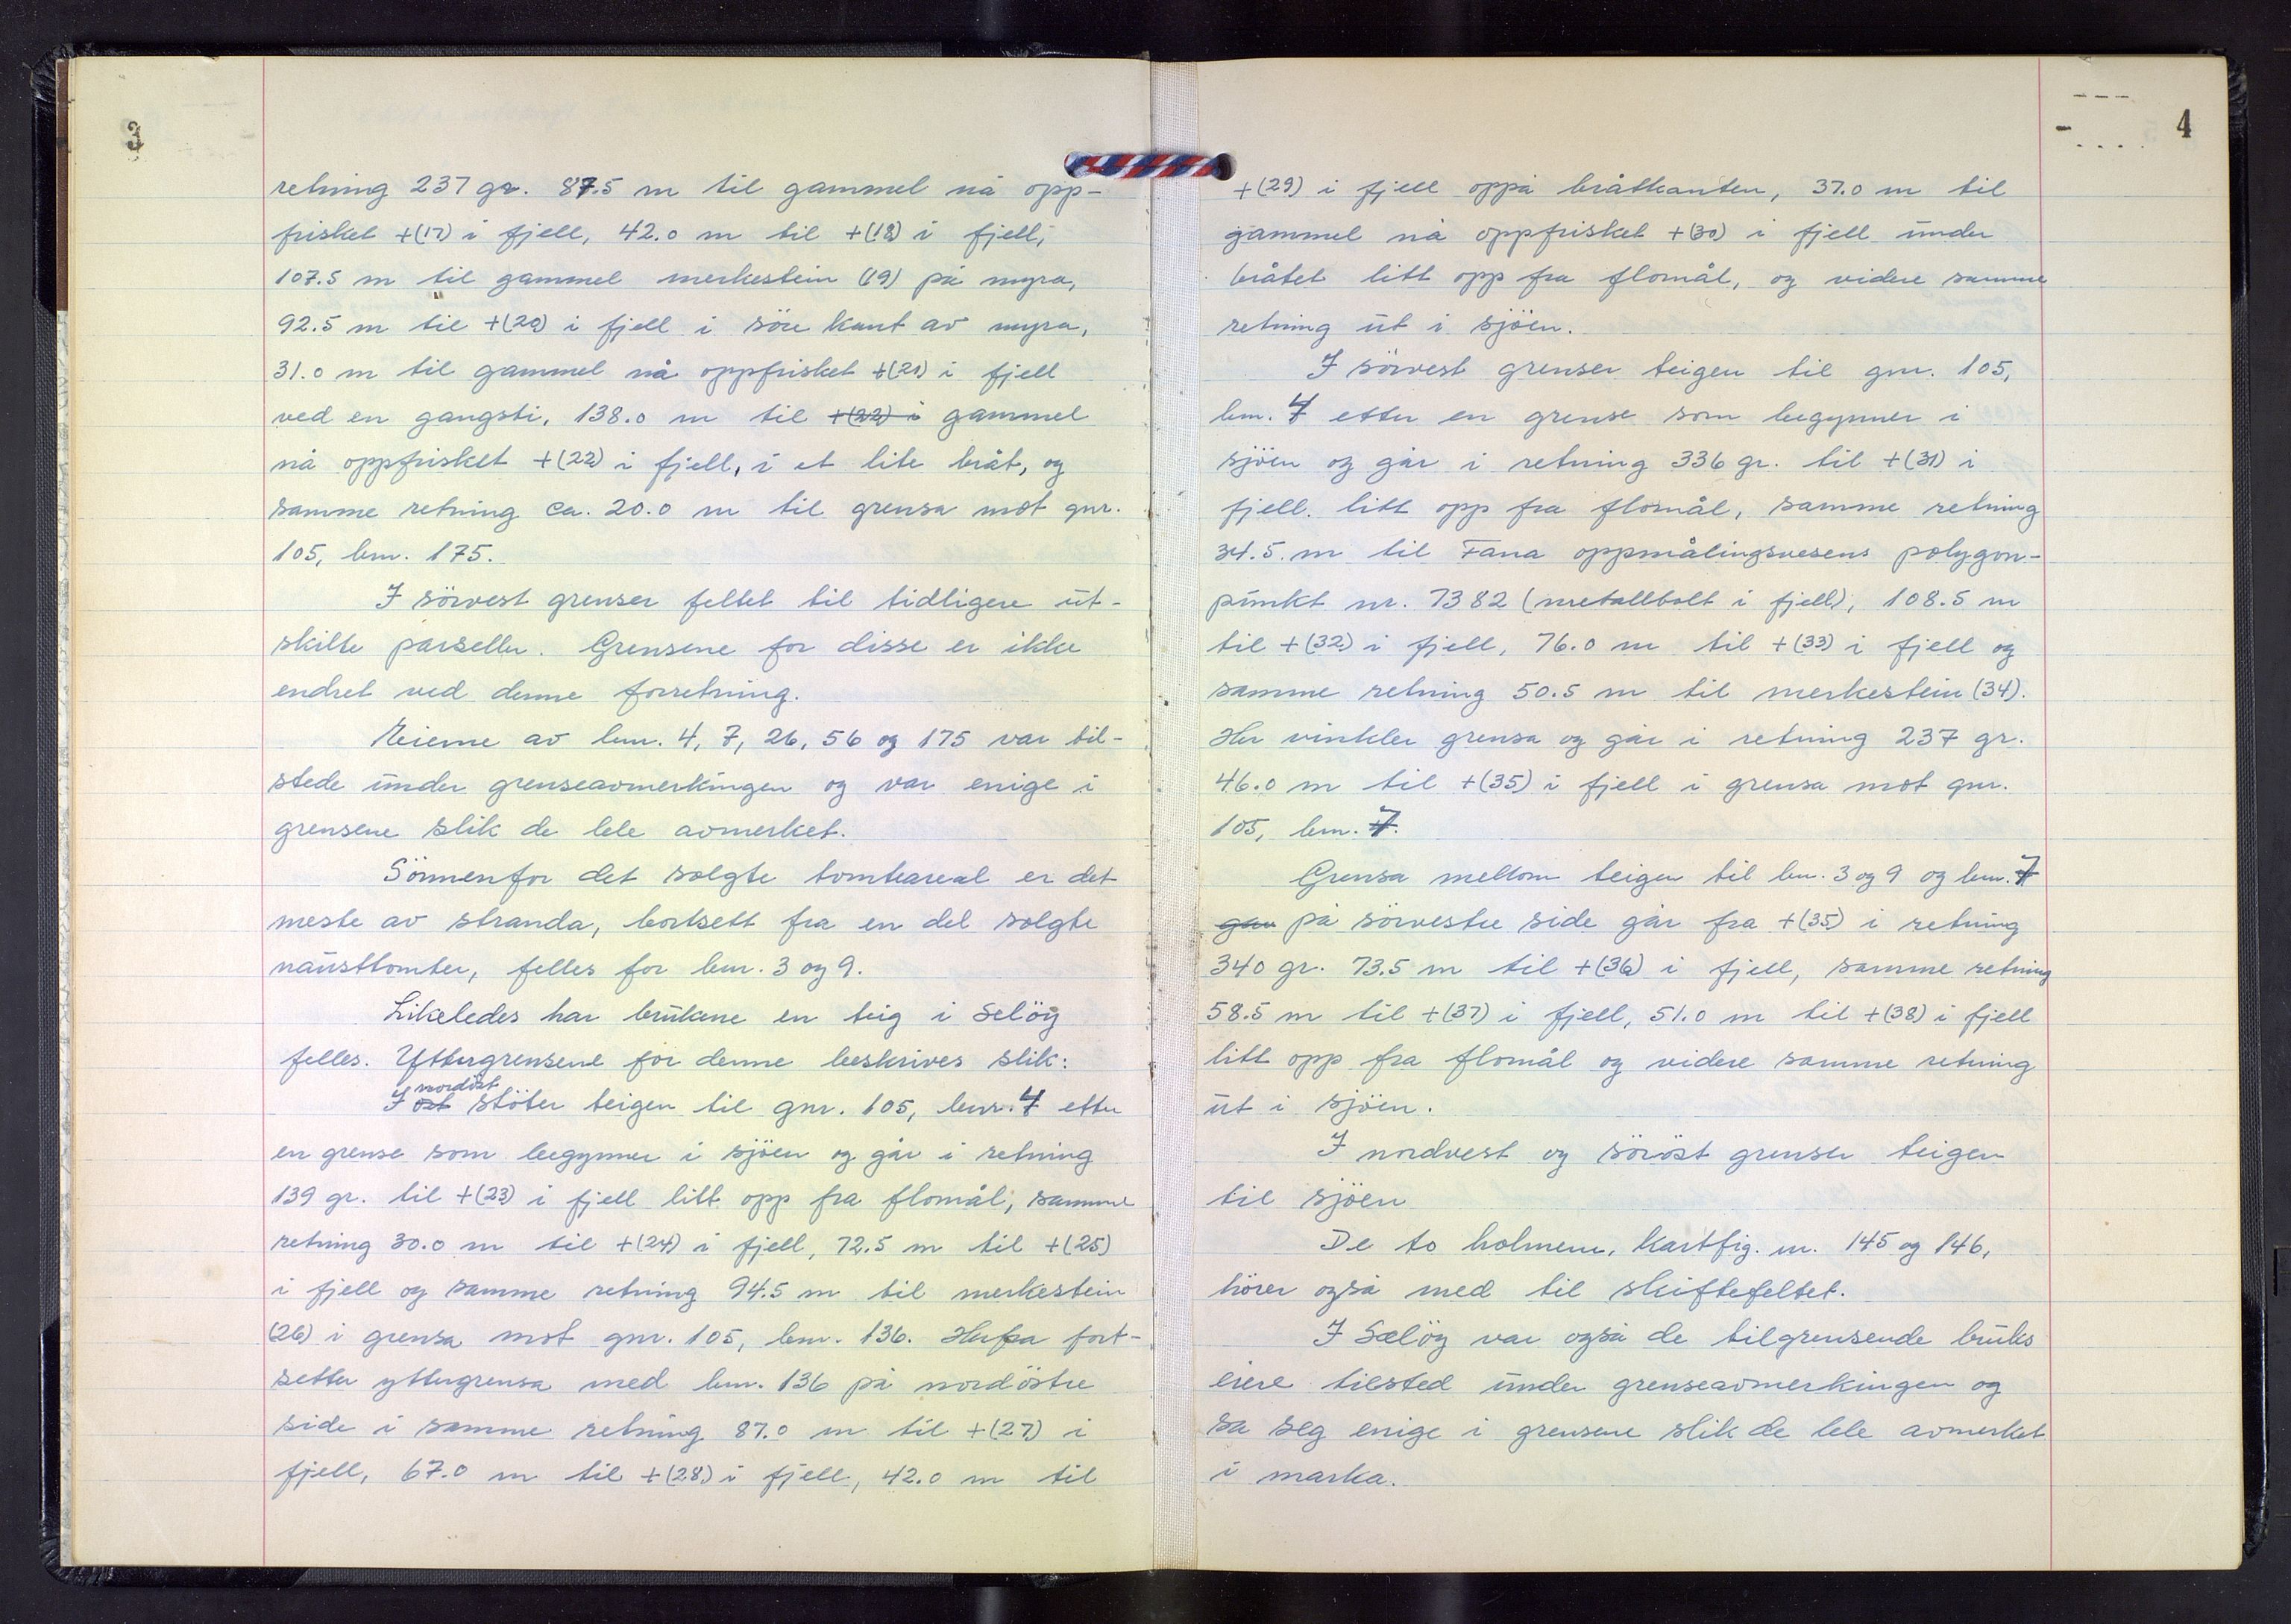 3
retning 237 gr. 87.5 m til gammel nå opp-
frisket +(17) i fjell, 42.0 m til +(18) i fjell,
107.5 m til gammel merkestein (19) på myra,
92.5 m til +(20) i fjell i söre kant av myra,
31.0 m til gammel nå oppfrisket +(21) i fjell
ved en gangsti, 138.0 m til +(22) i gammel
nå oppfrisket +(22) i fjell, i et lite bråt, og
samme retning ca. 20.0 m til grensa mot gnr.
105, bnr. 175.
I sörvest grenser feltet til tidligere ut-
skilte parseller. Grensene for disse er ikke
endret ved denne forretning.
Eierne av bnr. 4, 7, 26, 56 og 175 var til-
stede under grenseavmerkingen og var enige i
grensene slik de ble avmerket.
Sönnenfor det solgte tomteareal er det
meste av stranda, bortsett fra en del solgte
nausttomter, felles for bnr. 3 og 9.
Likeledes har brukene en teig i Selöy
felles. Yttergrensene for denne beskrives slik:
nordöst
I öst stöter teigen til gnr. 105, bnr. 4 etter
en grense som begynner i sjöen og går i retning
139 gr. til +(23) i fjell litt opp fra flomål, samme
retning 30.0 m til +(24) i fjell, 72.5 m til +(25)
i fjell og samme retning 94.5 m til merkestein
(26) i grensa mot gnr. 105, bnr. 136. Herfra fort-
setter yttergrensa med bnr. 136 på nordöstre
side i samme retning 87.0 m til +(27) i
fjell, 67.0 m til +(28) i fjell, 42.0 m til
4
+(29) i fjell oppå bråtkanten, 37.0 m til
gammel nå oppfrisket +(30) i fjell under
bråtet litt opp fra flomål, og videre samme
retning ut i sjöen.
I sörvest grenser teigen til gnr. 105,
bnr. 4 etter en grense som begynner i
sjöen og går i retning 336 gr. til +(31) i
fjell litt opp fra flomål, samme retning
34.5 m til Fana oppmålingsvesens polygon-
punkt nr. 7382 (metallbolt i fjell), 108.5 m
til +(32) i fjell, 76.0 m til +(33) i fjell og
samme retning 50.5 m til merkestein (34).
Her vinkler grensa og går i retning 237 gr.
46.0 m til +(35) i fjell i grensa mot gnr.
105, bnr. 7.
Grensa mellom teigen til bnr. 3 og 9 og bnr. 7
gar på sörvestre side går fra +(35) i retning
340 gr. 73.5 m til +(36) i fjell, samme retning
58.5 m til +(37) i fjell, 51.0 m til +(38) i fjell
litt opp fra flomål og videre samme retning
ut i sjöen.
I nordvest og söröst grenser teigen
til sjöen
De to holmene, kartfig. nr. 145 og 146,
hörer også med til skiftefeltet.
I Sælöy var også de tilgrensende bruks
eiere tilsted under grenseavmerkingen og
sa seg enige i grensene slik de ble avmerket
i marka.